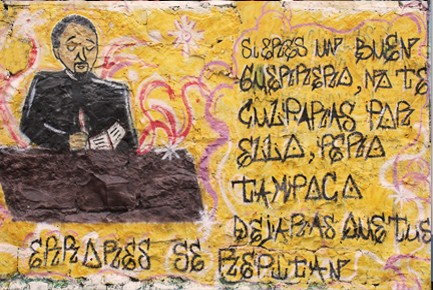 SI ERES UN BUEN
GUERRERO, NO TE
CULPARAS POR
ELLO, PERO
TAMPOCO
DEJARAS QUE TUS
ERRORES SE REPITAN